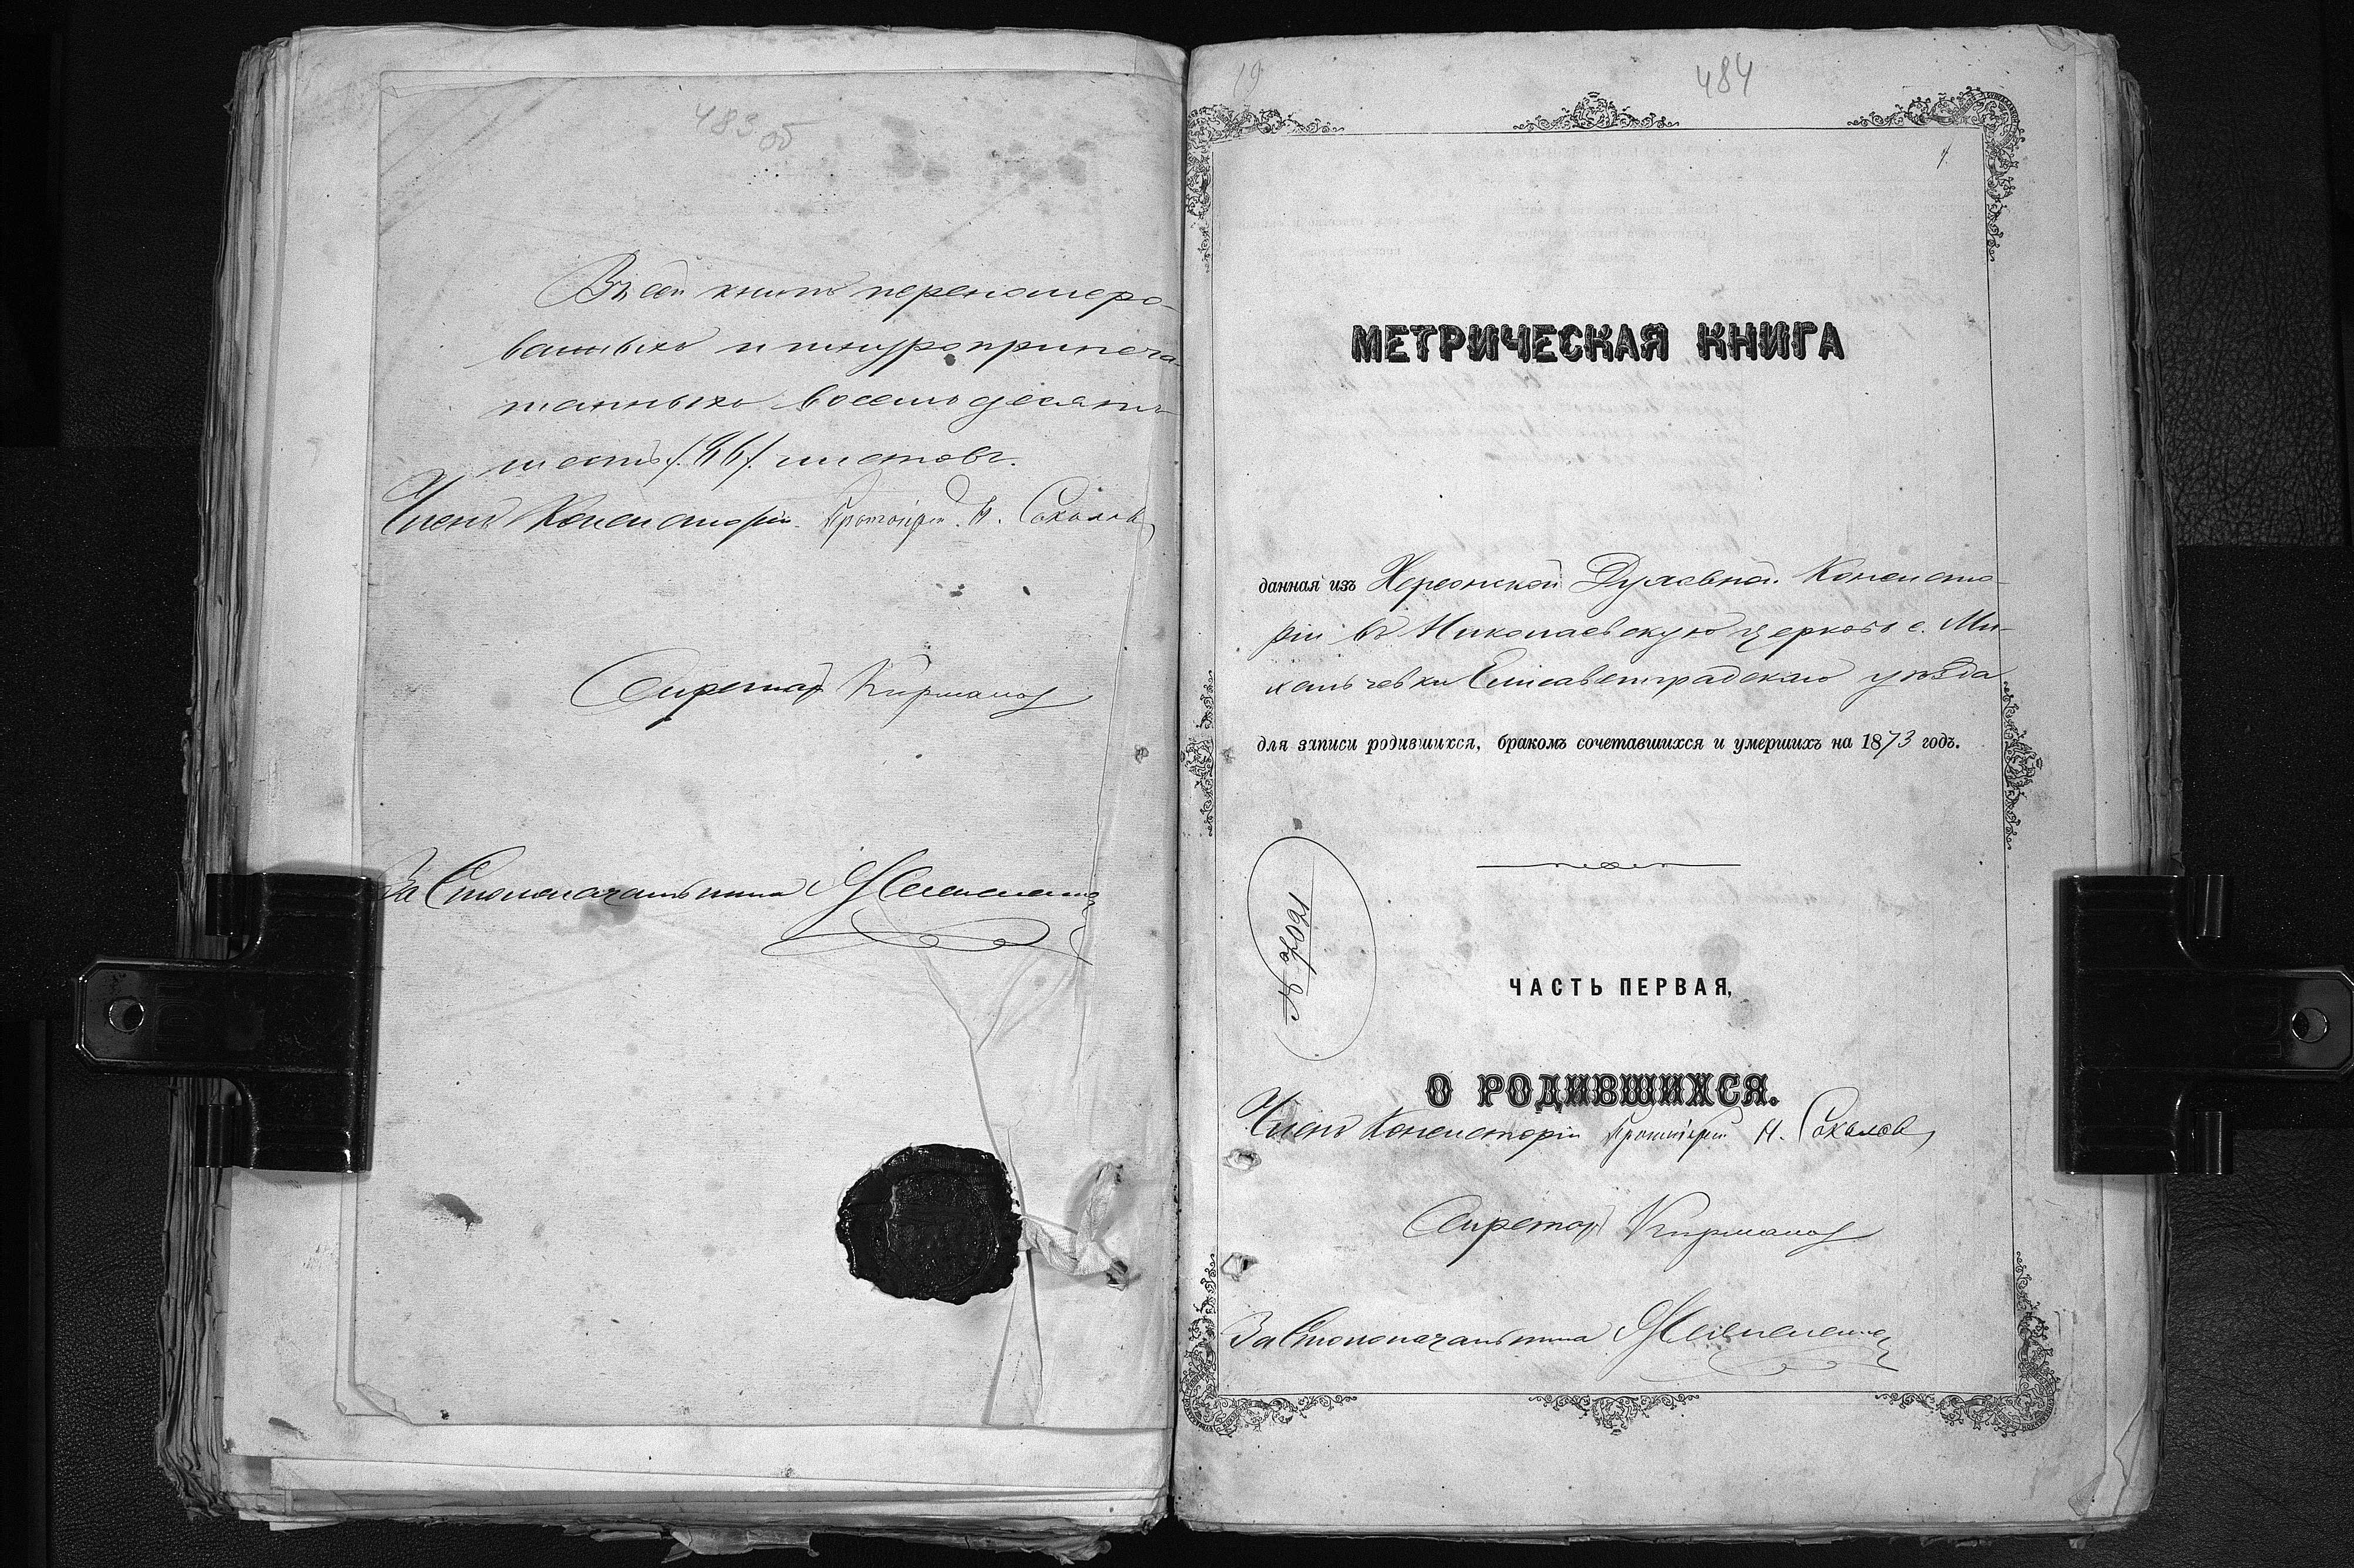 483 об
Въ сей книгѣ переномеро-
ванныхъ и шнуроприпеча-
танныхъ восемьдесятъ
шесть /.86/. листовъ.
Членъ Консисторіи Протоіерей Н. Соколовъ
Секретарь
За Столоначальника
19
484
1.
МЕТРИЧЕСКАЯ КНИГА
данная изъ Херсонской Духовной Консисто-
ріи въ Николаевскую церковь с. Ми-
хальчевки Елисаветградскаго уѣзда
для записи родившихся, бракомъ сочетавшихся и умершихъ на 1873 годъ.
№ 7021
ЧАСТЬ ПЕРВАЯ,
О РОДИВШИХСЯ.
Членъ Консисторіи Протоіерей Н. Соколовъ
Секретарь
За Столоначальника